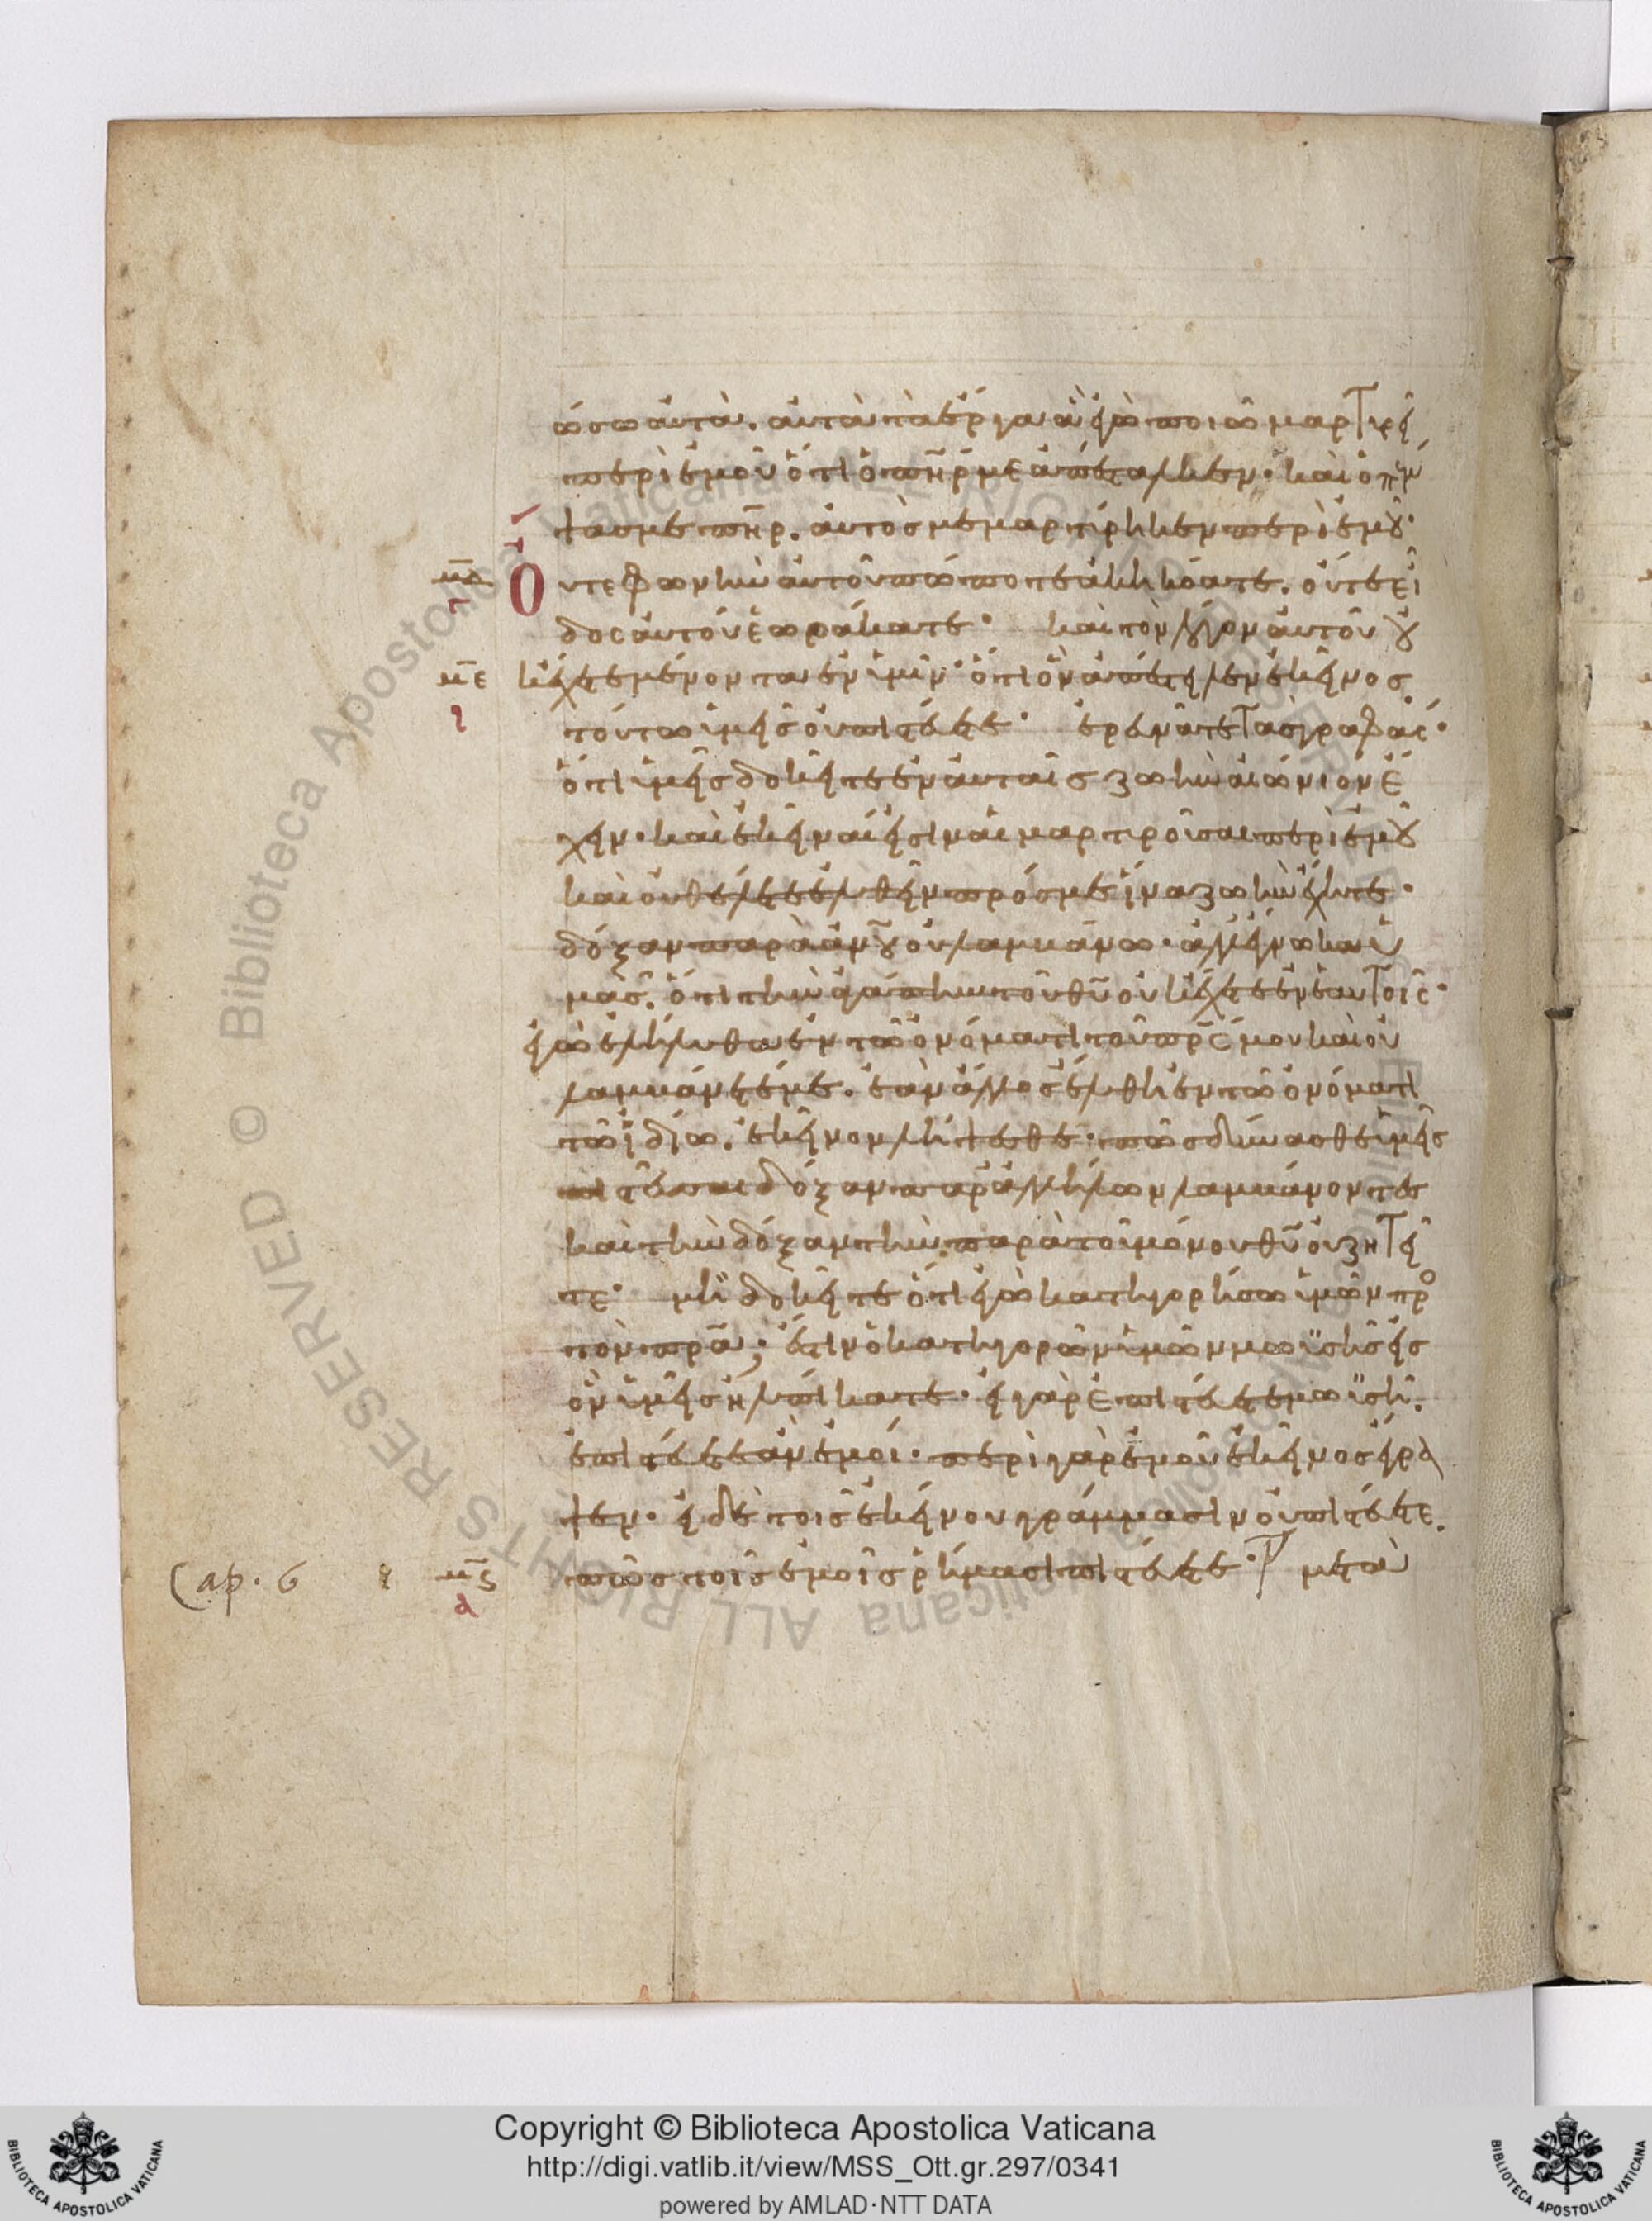 ώσω αυτὰ. αὐτὰ τὰ ἔργα ἃ ἐγὼ ποιῶ μαρτυρεῖ
περὶ ἐμοῦ ὅτι ὁ πηρ με ἀπέσταλκεν· καὶ ὁ πέμ
ψας με πηρ. αὐτὸς μεμαρτύρηκεν περὶ ἐμοῦ·
μδ γ Οὔτε φωνὴν αὐτοῦ πώποτε ἀκηκόατε. οὔτε εἶ
δος αὐτοῦ ἑωράκατε· καὶ τὸν λόγον αὐτοῦ οὐ
με ι κ ἔχετε μένοντα ἐν ὑμῖν· ὅτι ὃν ἀπέστειλεν ἐκεῖνος
τούτω ὑμεῖς οὐ πιστεύετε· ἐρευνᾶτε τὰς γραφάς·
ὅτι ὑμεῖς δοκεῖτε ἐν αὐταῖς ζωὴν αἰώνιον ἔ
χειν· καὶ ἐκεῖναί εἰσιν αἱ μαρτυροῦσαι περὶ ἐμοῦ
καὶ οὐ θέλετε ἐλθεῖν πρός με ἵνα ζωὴν ἔχητε·
δόξαν παρὰ ἀνου οὐ λαμβάνω· ἀλλ' ἔγνωκα ὑ
μᾶς. ὅτι τὴν ἀγάπην τοῦ θυ οὐκ ἔχετε ἐν ἑαυτοῖς·
ἐγὼ ἐλήλυθα ἐν τῶ ὀνόματι τοῦ πρς μου καὶ οὐ
λαμβάνετέ με. ἐὰν ἄλλος ἔλθη ἐν τῶ ὀνόματι
τῶ ἰδίω. ἐκεῖνον λήψεσθε· πῶς δύνασθε ὑμεῖς
πιστεῦσαι δόξαν παρ' ἀλλήλων λαμβάνοντες
καὶ τὴν δόξαν τὴν παρὰ τοῦ μόνου θυ οὐ ζητεῖ
τε· μὴ δοκεῖτε ὅτι ἐγὼ κατηγορήσω ὑμῶν πρὸ
τὸν πρα; ἔστιν ὁ κατηγορῶν ὑμῶν μωϋσῆς εἰς
ὃν ὑμεῖς ἠλπίκατε· εἰ γὰρ ἐπιστεύετε μωϋσῆ.
ἐπιστεύετε ἂν ἐμοί· περὶ γὰρ ἐμοῦ ἐκεῖνος ἔγρα
ψεν· εἰ δὲ τοῖς ἐκείνου γράμμασιν οὐ πιστεύετε.
Cap. 6 μς α πῶς τοῖς ἐμοῖς ῥήμασι πιστεύετε· μετὰ
Copyright © Biblioteca Apostolica Vaticana
http://digi.vatlib.it/view/MSS_Ott.gr.297/0341
powered by AMLAD·NTT DATA